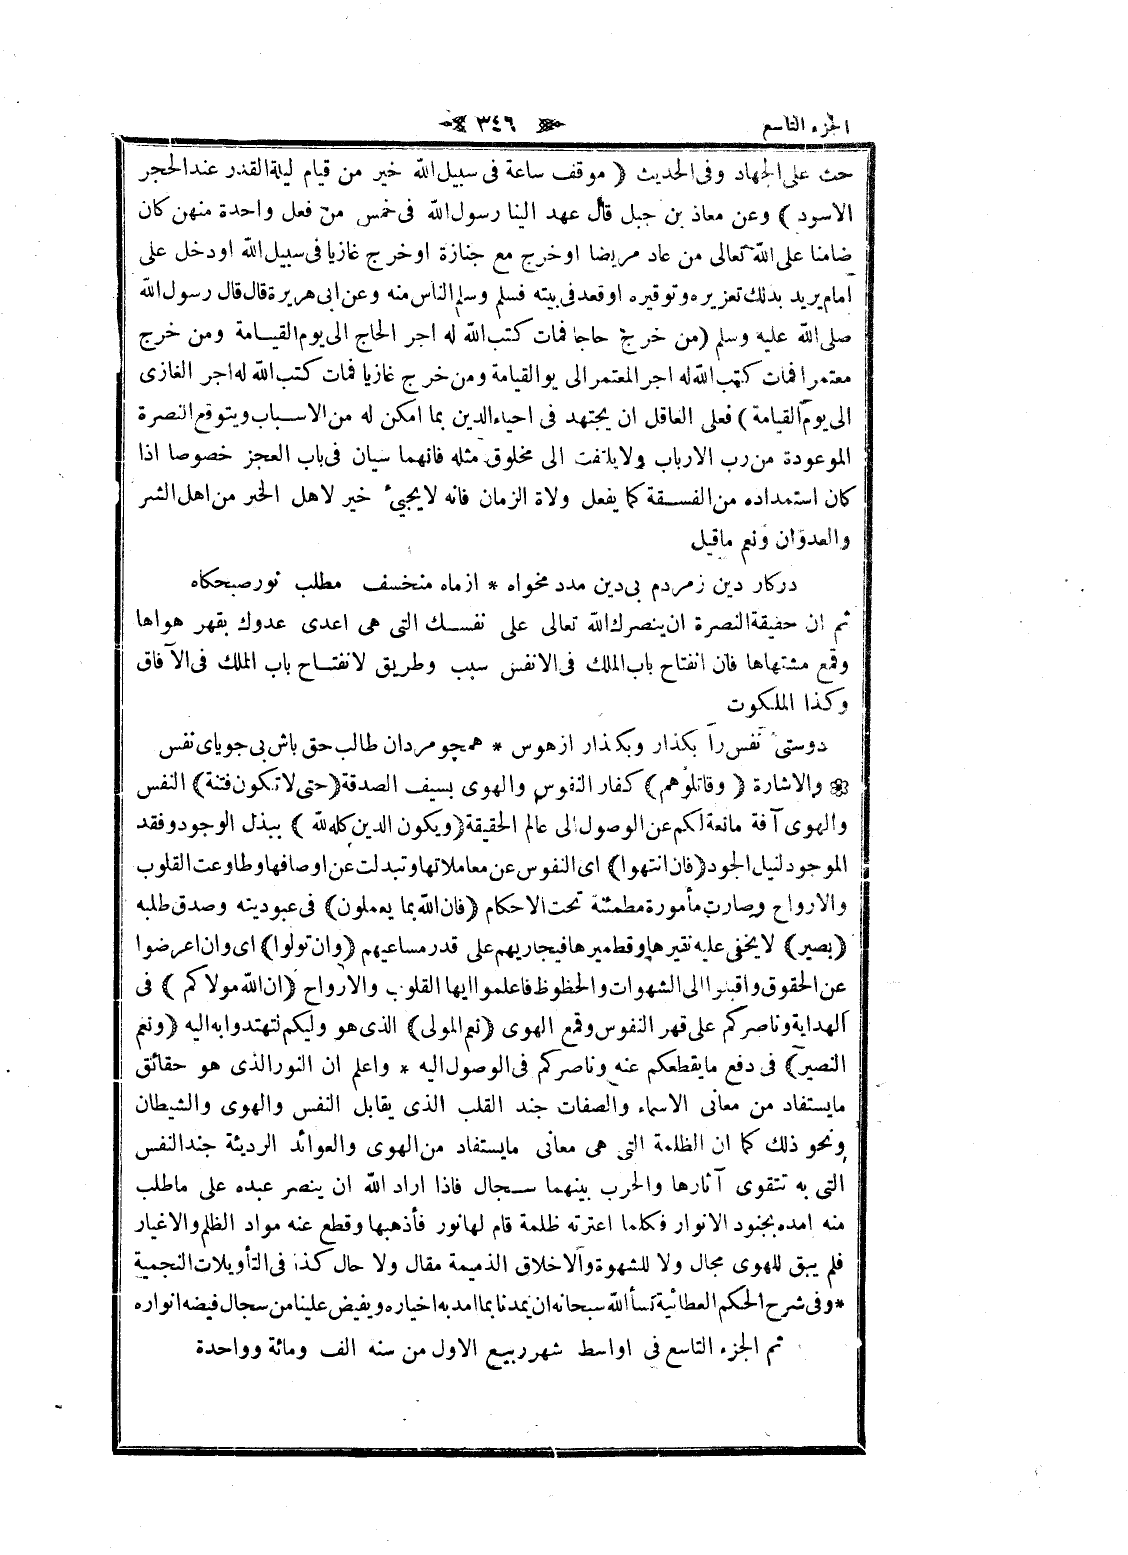 الجزء التاسع ٣٤٦
حث على الجهاد وفى الحديث ( موقف ساعة فى سبيل الله خير من قيام ليلة القدر عند الحجر
الاسود ) وعن معاذ بن جبل قال عهد الينا رسول الله فى خمس من فعل واحدة منهن كان
ضامنا على الله تعالى من عاد مريضا او خرج مع جنازة او خرج غازيا فى سبيل الله او دخل على
امام يريد بذلك تعزيره وتوقيره او قعد فى بيته فسلم وسلم الناس منه وعن ابى هريرة قال قال رسول الله
صلى الله عليه وسلم (من خرج حاجا فمات كتب الله له اجر الحاج الى يوم القيامة ومن خرج
معتمرا فمات كتب الله له اجر المعتمر الى يو القيامة ومن خرج غازيا فمات كتب الله له اجر الغازى
الى يوم القيامة ) فعلى العاقل ان يجتهد فى احياء الدين بما امكن له من الاسباب ويتوقع النصرة
الموعودة من رب الارباب ولا يلتفت الى مخلوق مثله فانهما سيان فى باب العجز خصوصا اذا
كان استمداده من الفسقة كما يفعل ولاة الزمان فانه لا يجيئ خير لاهل الخير من اهل الشر
والعدوان ونعم ماقيل
دركار دين زمردم بى دين مدد مخواه * از ماه منخسف مطلب نور صبحكاه
ثم ان حقيقة النصرة ان ينصرك الله تعالى على نفسك التى هى اعدى عدوك بقهر هواها
وقمع مشتهاها فان انفتاح باب الملك فى الانفس سبب وطريق لانفتاح باب الملك فى الآفاق
وكذا الملكوت
دوستئ نفس را بكذار وبكذار از هوس * همچو مردان طالب حق باش بى جوياى نفس
والاشارة ( وقاتلوهم ) كفار النفوس والهوى بسيف الصدقة (حتى لا تكون فتنة) النفس
والهوى آفة مانعة لكم عن الوصول الى عالم الحقيقة (ويكون الدين كله لله ) ببذل الوجود وفقد
الموجود لنيل الجود (فان انتهوا) اى النفوس عن معاملاتها وتبدلت عن اوصافها وطاوعت القلوب
والارواح وصارت مأمورة مطمئنة تحت الاحكام (فان الله بما يعملون) فى عبوديته وصدق طلبه
(بصير) لا يخفى عليه نقيرها وقطميرها فيجاريهم على قدر مساعيهم (وان تولوا) اى وان اعرضوا
عن الحقوق واقبلوا الى الشهوات والحظوظ فاعلموا ايها القلوب والارواح (ان الله مولاكم ) فى
الهداية وناصركم على قهر النفوس وقمع الهوى (نعم المولى) الذى هو وليكم لتهتدوا به اليه (ونعم
النصير) فى دفع ما يقطعكم عنه وناصركم فى الوصول اليه * واعلم ان النور الذى هو حقائق
ما يستفاد من معانى الاسماء والصفات جند القلب الذى يقابل النفس والهوى والشيطان
ونحو ذلك كما ان الظلمة التى هى معانى ما يستفاد من الهوى والعوائد الرديئة جند النفس
التى به تتقوى آثارها والحرب بينهما سجال فاذا اراد الله ان ينصر عبده على ما طلب
منه امده بجنود الانوار فكلما اعترته ظلمة قام لها نور فأذهبها وقطع عنه مواد الظلم والاغيار
فلم يبق للهوى مجال ولا للشهوة والاخلاق الذميمة مقال ولا حال كذا فى التأويلات النجمية
* وفى شرح الحكم العطائية نسأ الله سبحانه ان يمدنا بما امد به اخياره ويفيض علينا من سجال فيضه انواره
تم الجزء التاسع فى اواسط شهر ربيع الاول من سنه الف ومائة وواحدة